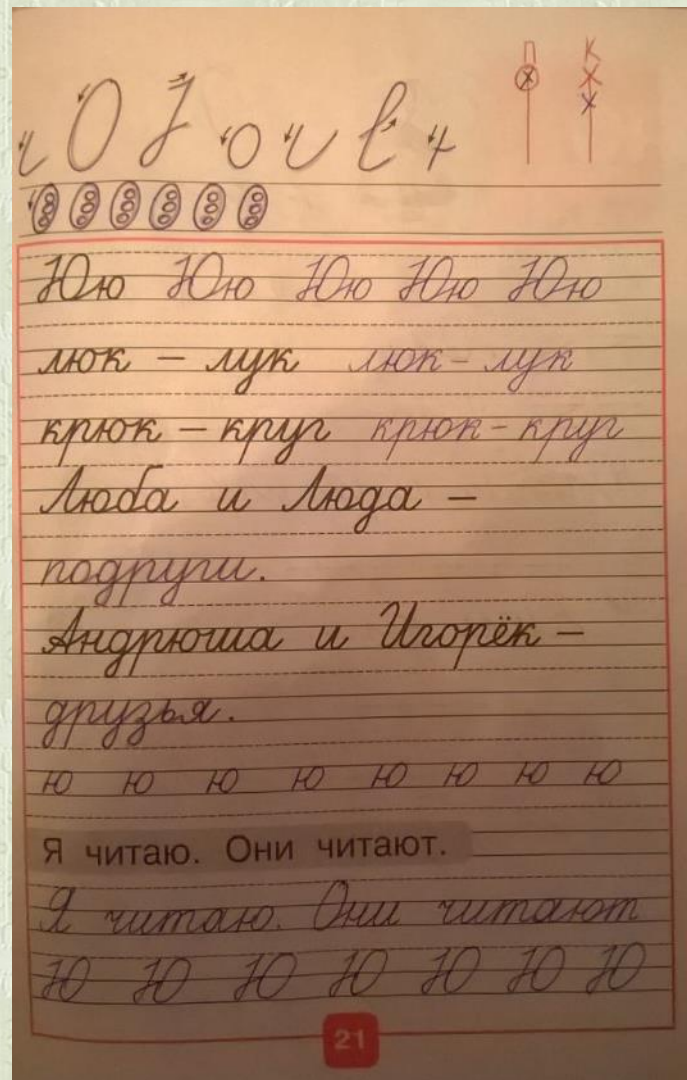 П К
Юю Юю Юю Юю Юю
люк – лук люк – лук
крюк – круг крюк – круг
Люба и Люда –
подруги.
Андрюша и Игорёк –
друзья.
ю ю ю ю ю ю ю ю
Я читаю. Они читают.
Я читаю. Они читают
Ю Ю Ю Ю Ю Ю Ю
21